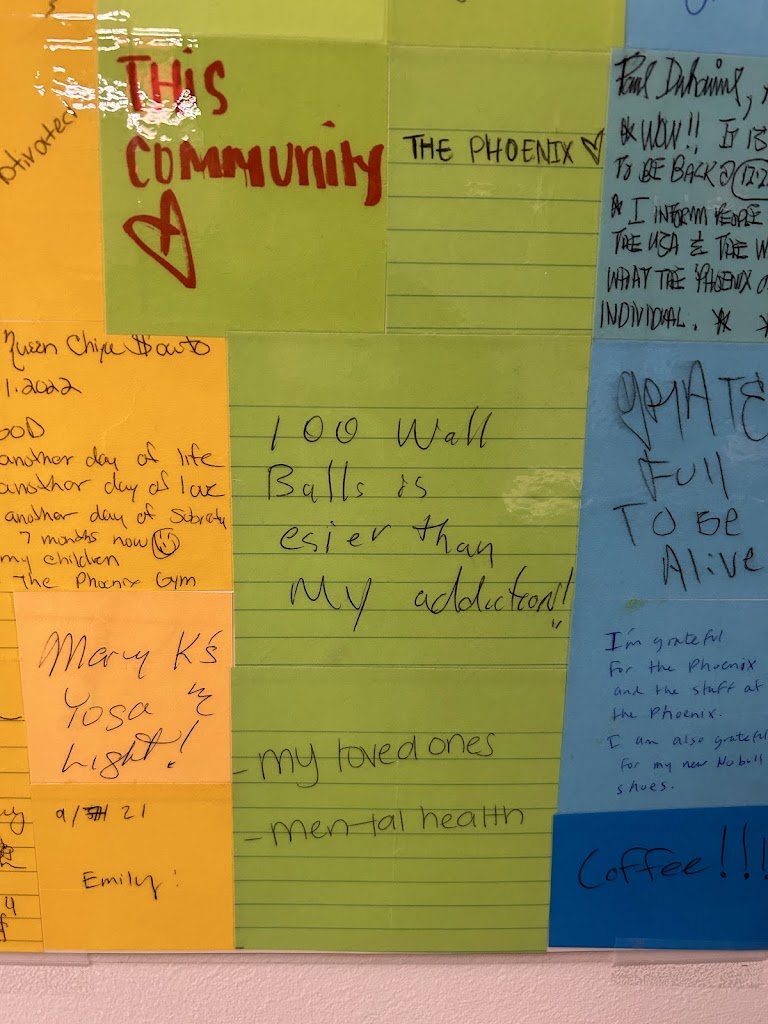 THIS
COMMUNITY
THE PHOENIX
WOW!! IT IS
TO BE BACK @
I INFORM PEOPLE
THE USA & THE W
WHAT THE PHOENIX
INDIVIDUAL.
otivated
Queen
1.2022
GOD
another day of life
another day of love
another day of Sobriety
7 months now
my children
The Phoenix Gym
100 Wall
Balls is
esier than
My addiction!!
grATE
Full
TO Be
Alive
Marcy K's
Yoga &
Light!
I'm grateful
for the Phoenix
and the staff at
the Phoenix.
I am also grateful
for my new Nobull
shoes.
- my loved ones
- mental health
9/ 21
Emily:
Coffee!!!